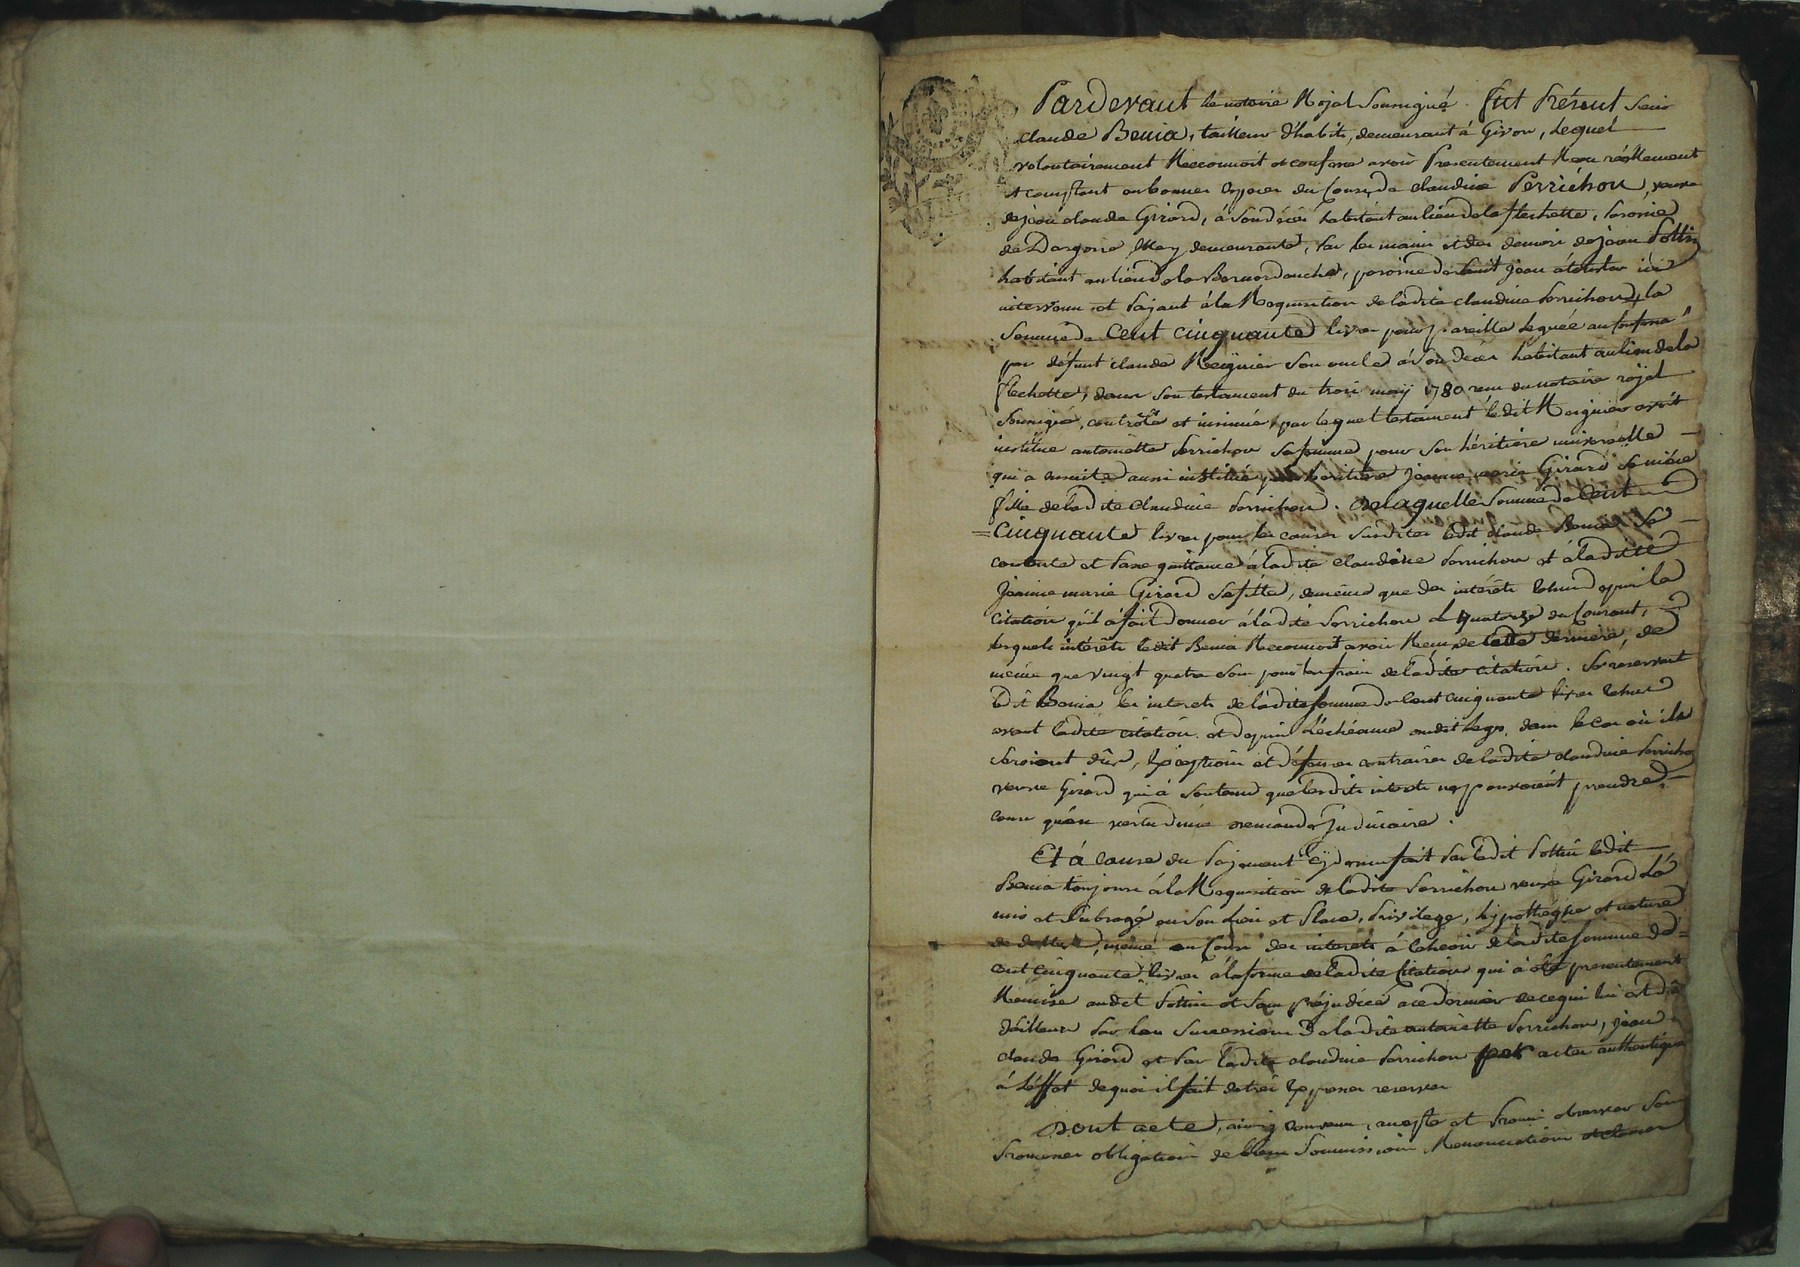 Pardevant le notaire Royal Soussigné. fut Présent Sieur
claude Benia, tailleur d'habits, demeurant à Givor, lequel
volontairement Reconnoit et confesse avoir Presentement Recu réellement
et comptant en bonnes especes du Cours, de claudine Perrichon, veuve
de jean claude Girard, à Son décès habitant au lieu de la flechette, Paroisse
de Dargoire, elle y demeurante, Par les mains et des deniers de jean Pottin
habitant au lieu de la Bernardouche, paroisse de Saint jean à touslas ici
intervenu et Païant à la Requisition de ladite claudine Perrichon, la
Somme de Cent Cinquante livres pour pareille leguée au confessé
par défunt claude Reignier Son oncle à Son décès habitant au lieu de la
flechette, dans Son testament du trois may 1780 recu du notaire roÿal
Soussigné, controllé et insinué, par lequel testament ledit Reignier avoit
institué antoinette Perrichon Sa femme pour Son héritière universelle
qui a ensuite aussi institué pour héritière Jeanne marie Girard Sa nièce
fille de ladite Claudine Perrichon. De laquelle Somme de Cent
= Cinquante livres pour les causes Susdites ledit claude Benia Se
contente et Passe quittance à ladite claudine Perrichon et à ladite
Jeanne marie Girard Sa fille, de même que des intérêts échus depuis la
Citation qu'il a fait Donner à ladite Perrichon le quatorze du Courant,
lesquels intérêts ledit Benia Reconnoit avoir Recu de cette dernière, de
même que vingt quatre Sous pour les frais de ladite citation. Se réservant
ledit Benia les interets de ladite Somme de Cent Cinquante livres échus
avant ladite citation et depuis l'échéance dudit legs, dans le cas où ils
Seroient dûs, Exceptions et défenses contraires de ladite claudine Perrichon
veuve Girard qui a Soutenu que lesdits interets ne pouvoient prendre
cours qu'en vertu d'une demande Judiciaire.
Et à cause du Païement cÿdessus fait Par ledit Pottin ledit
Benia toujours à la Requisition de ladite Perrichon veuve Girard L'a
mis et Subrogé en Son Lieu et Place, Privilege, hÿpothèque et nature
de dette, même au Cours des interets à écheoir de ladite Somme de
cent cinquante livres à la forme de ladite Citation qui a été presentement
Remise audit Pottin et Sans Préjudice à ce dernier de ce qui lui est dû
d'ailleurs Par les Successions de ladite antoinette Perrichon, jean
claude Girard et Par ladite claudine Perrichon par actes authentiques
à l'effet de quoi il fait d'etroites Expresses reserves
Dont acte, ainsi convenu, accepté et Promis observer Sous
Promesses obligations de biens Soumissions Renonciations et clauses